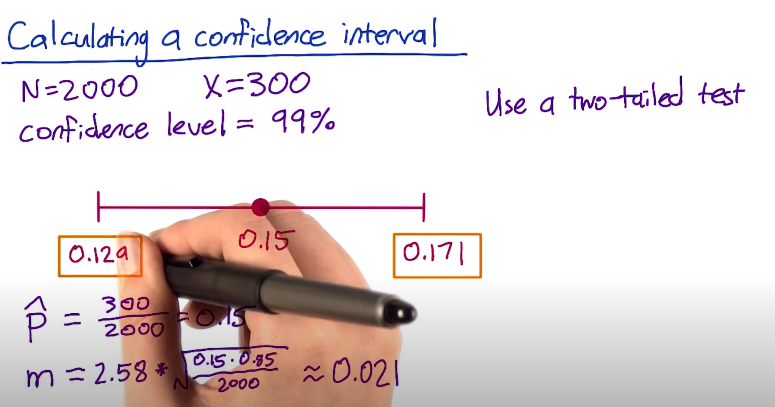 Calculating a confidence interval
N=2000 X=300
confidence level = 99%
Use a two-tailed test
0.15
0.129 0.171
p̂ = 300/2000 = 0.15
m = 2.58 * √(0.15·0.85/2000) ≈ 0.021